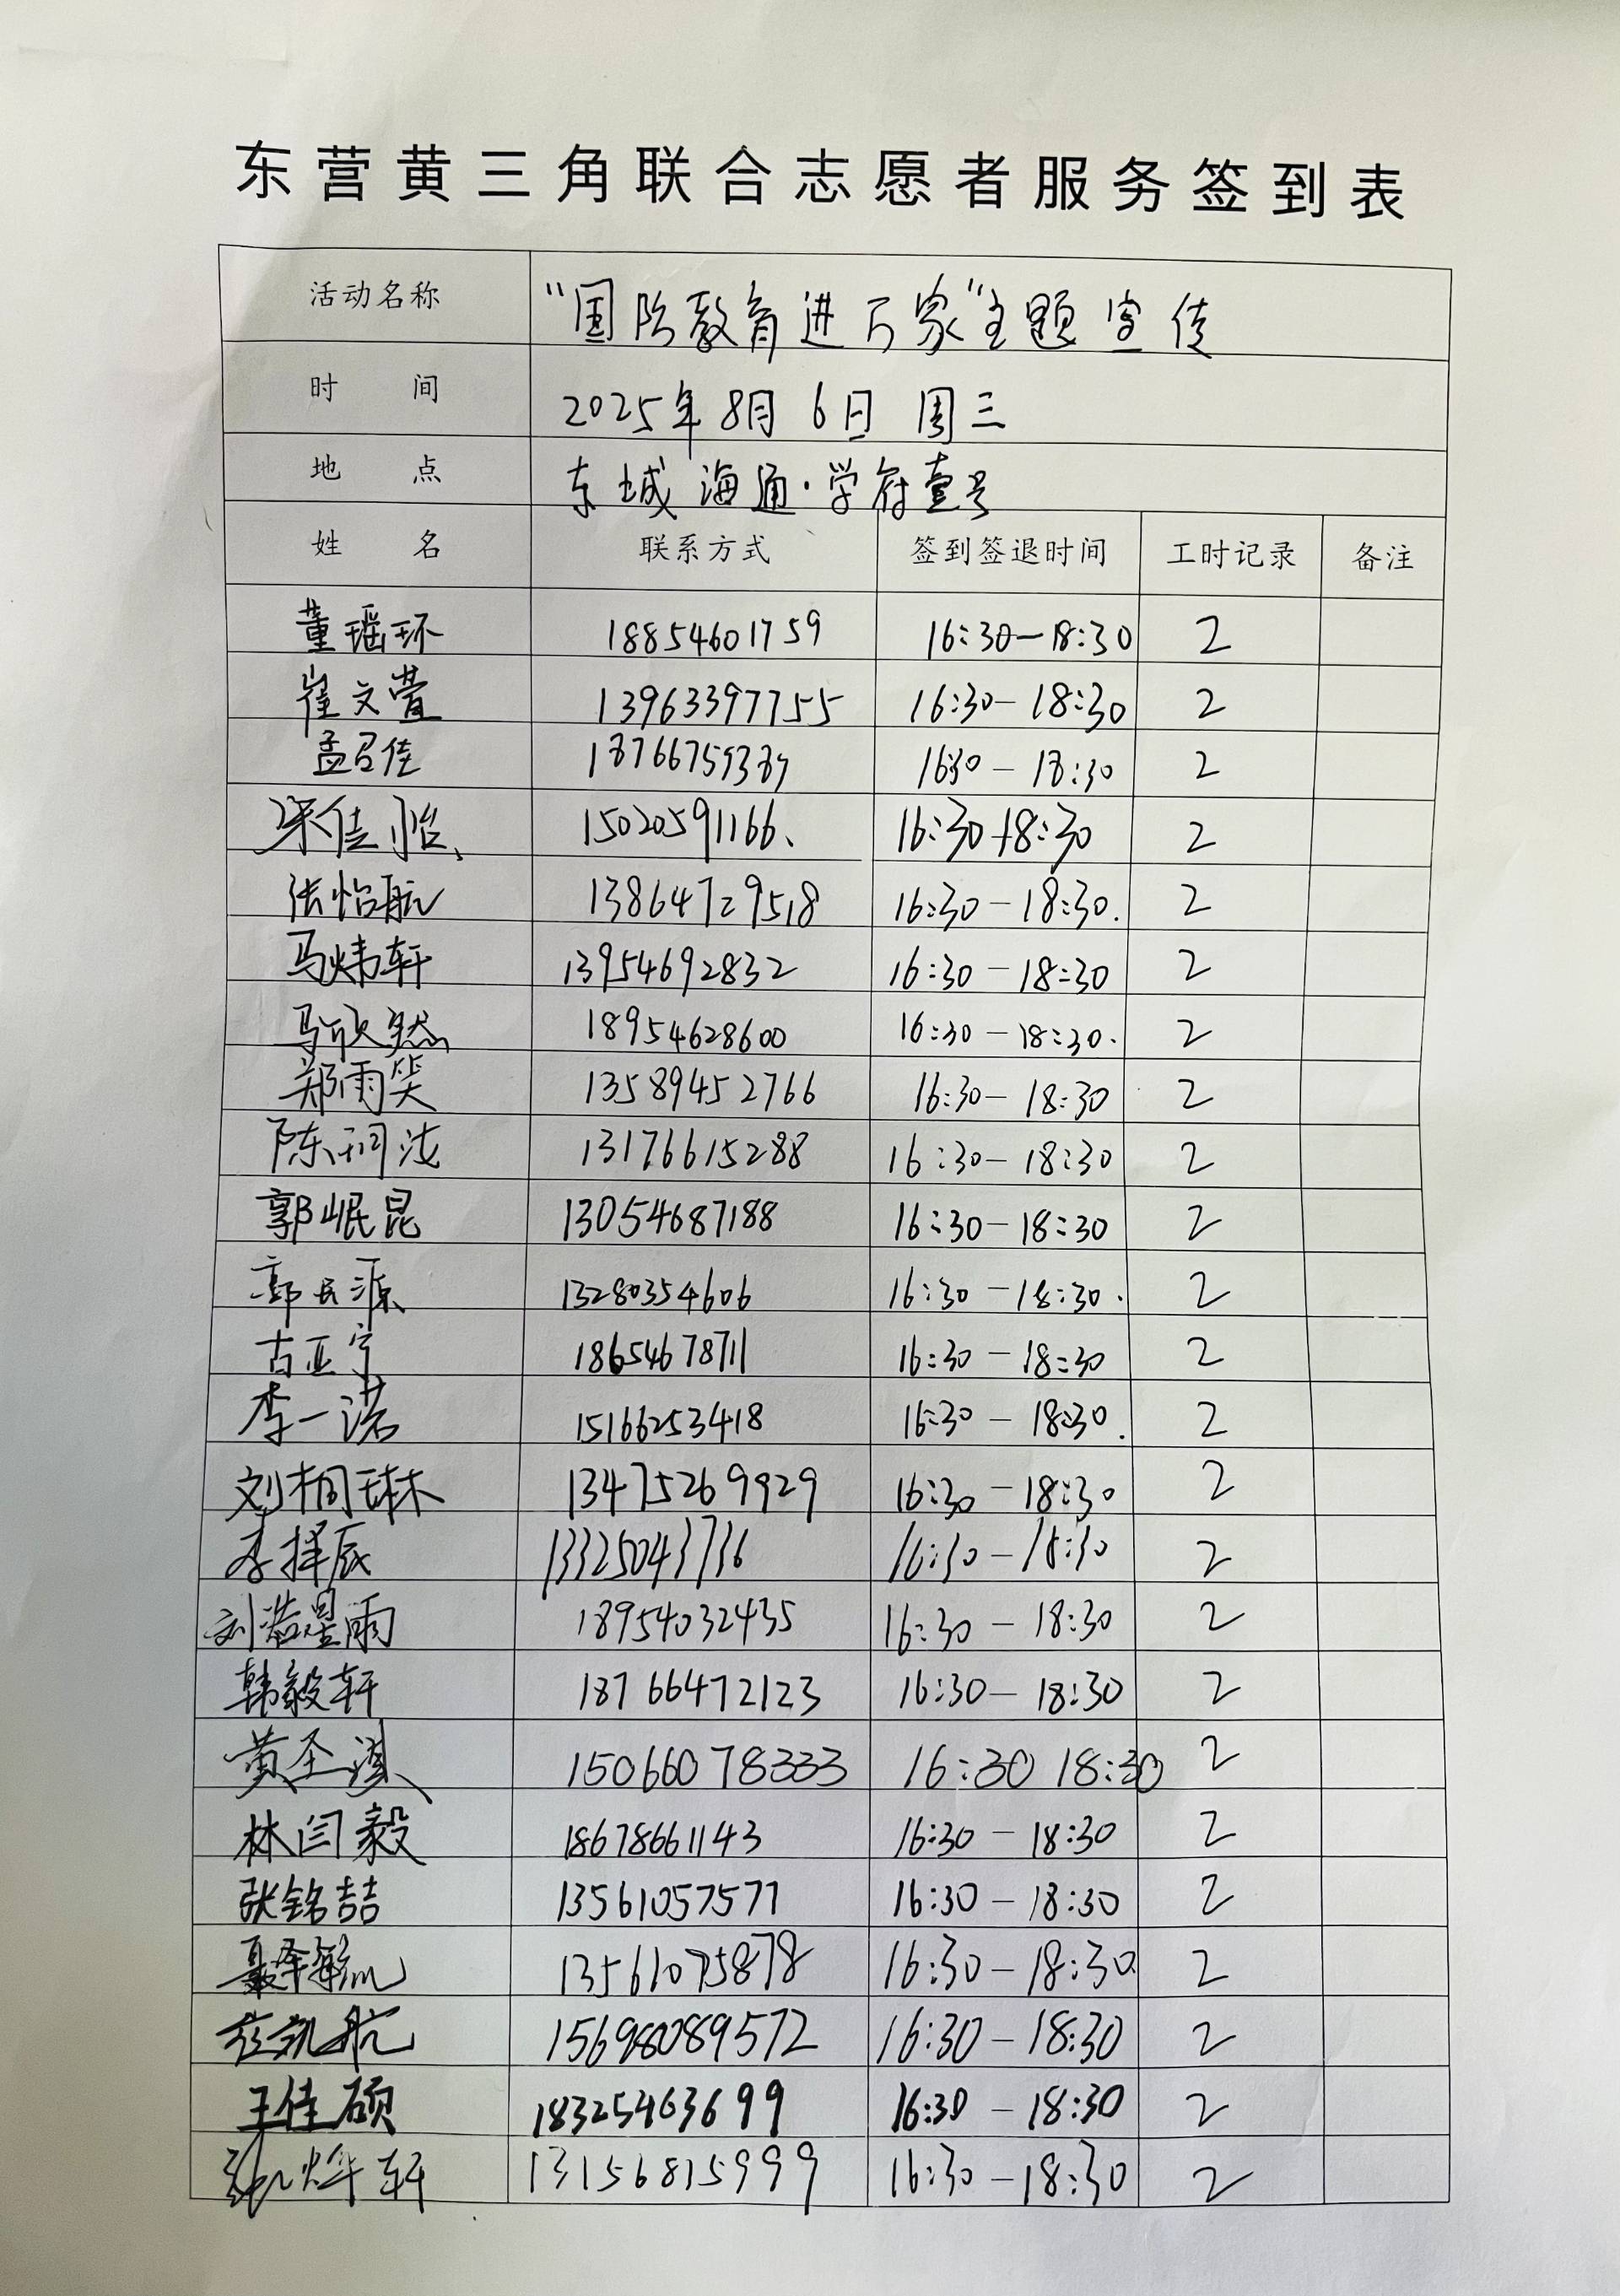 东营黄三角联合志愿者服务签到表
活动名称 “国防教育进万家”主题宣传
时 间 2025年8月6日 周三
地 点 东城海通·学府壹号
姓 名 联系方式 签到签退时间 工时记录 备注
董瑶环 18854601759 16:30-18:30 2
崔文萱 13963397755 16:30-18:30 2
孟召佳 18766759389 1630-18:30 2
宋佳怡、 15020591166、 16:30-18:30 2
张怡航 13864729518 16:30-18:30. 2
马炜轩 13954692832 16:30-18:30 2
马欣然 18954628600 16:30-18:30. 2
郑雨笑 13589452766 16:30-18:30 2
陈珂 13176615288 16:30-18:30 2
郭岷昆 13054687188 16:30-18:30 2
郭长源 13280354606 16:30-18:30. 2
古亚宁 18654678711 16:30-18:30 2
李一诺 15166253418 16:30-18:30. 2
刘桐琳 13475269929 16:30-18:30 2
李择辰 13325043736 16:30-18:30 2
刘浩星雨 18954032435 16:30-18:30 2
韩毅轩 18766472123 16:30-18:30 2
黄圣淇 15066078333 16:30 18:30 2
林闫毅 18678661143 16:30-18:30 2
张铭喆 13561057577 16:30-18:30 2
聂泽毓 13561075878 16:30-18:30 2
凯航 15698089572 16:30-18:30 2
王佳硕 18325463699 16:30-18:30 2
烨轩 13156815999 16:30-18:30 2